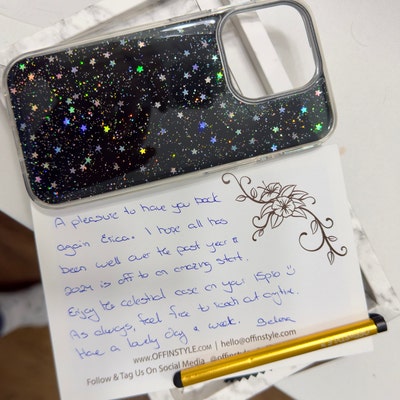 A pleasure to have you back
again Erica. I hope all has
been well over the past year &
2024 is off to an amazing start.
Enjoy the celestial case on your 15pro :)
As always, feel free to reach out anytime.
Have a lovely day & week.
WWW.OFFINSTYLE.COM | hello@offinstyle.com
Follow & Tag Us On Social Media @offinst